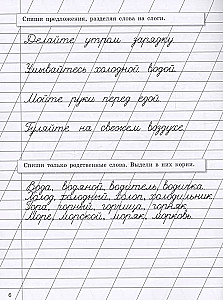 Спиши предложения, разделяя слова на слоги.
Делайте утром зарядку.
Умывайтесь холодной водой.
Мойте руки перед едой.
Гуляйте на свежем воздухе.
Спиши только родственные слова. Выдели в них корни.
Вода, водяной, водитель, водичка.
Холод, холодный, холоп, холодильник.
Гора, горный, горница, горняк.
Море, морской, моряк, морковь.
6